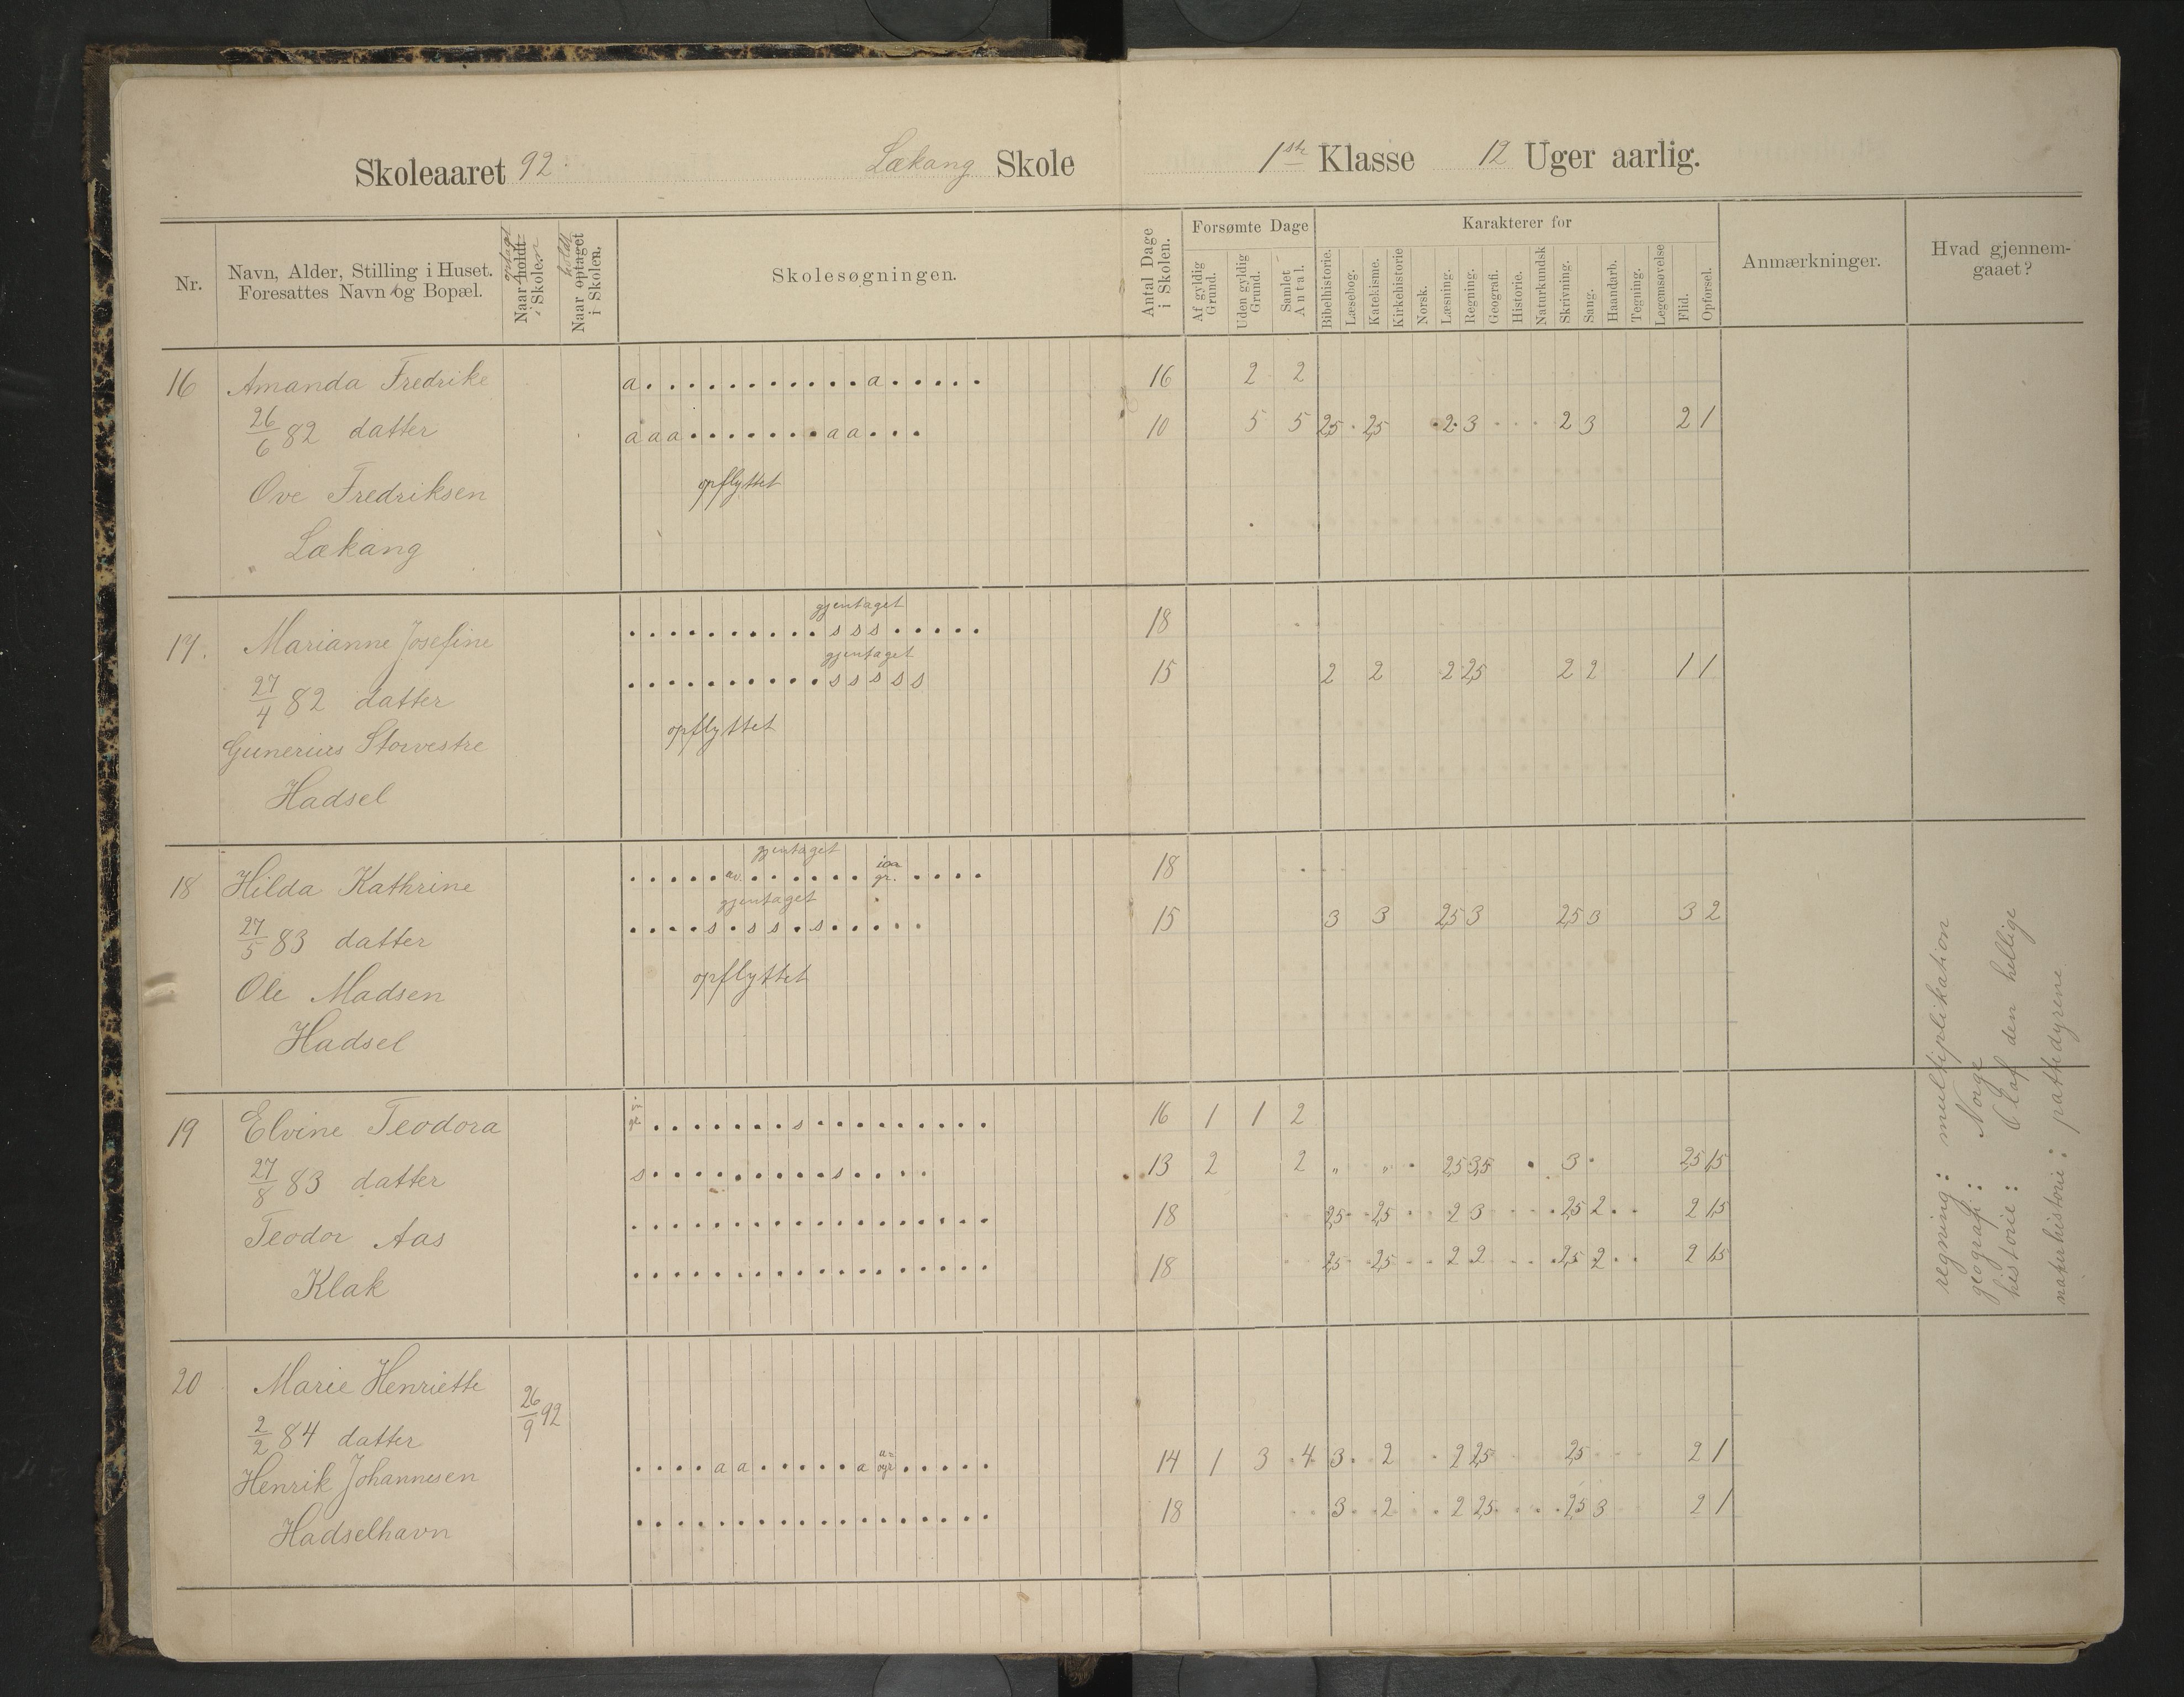 Skoleaaret 92. Lækang Skole 1ste Klasse 12 Uger aarlig.
Nr.
Navn, Alder, Stilling i Huset.
Foresattes Navn og Bopæl.
optaget
Naar holdt
i Skolen
holdt
Naar optaget
i Skolen.
Skolesøgningen.
Antal Dage
i Skolen.
Forsømte Dage
Af gyldig
Grund.
Uden gyldig
Grund.
Samlet
Antal.
Karakterer for
Bibelhistorie.
Læsebog.
Katekisme.
Kirkehistorie
Norsk.
Læsning.
Regning.
Geografi.
Historie.
Naturkundsk
Skrivning.
Sang.
Haandarb.
Tegning.
Legemsøvelse
Flid.
Opførsel.
Anmærkninger.
Hvad gjennem-
gaaet?
16 Amanda Fredrike a . . . . . . . . . . . a . . . . . 16 2 2
26/6 82 datter a a a . . . . . . . a a . . . 10 5 5 2,5 2,5 2 3 2 3 2 1
Ove Fredriksen opflyttet
Lækang
gjentaget
17. Marianne Josefine . . . . . . . . . . s s s . . . . . 18
gjentaget
27/4 82 datter . . . . . . . . . . s s s s s 15 2 2 2 2,5 2 2 1 1
Gunerius Storvestre opflyttet
Hadsel
gjentaget
18 Hilda Kathrine 18
gjentaget
27/5 83 datter . . . . s . s s . s . . . . . 15 3 3 2,5 3 2,5 3 3 2
Ole Madsen opflyttet
Hadsel
19 Elvine Teodora . . . . . . . s . . . . . . . . . 16 1 1 2
27/8 83 datter s . . . . . . . . . s . . . . 13 2 2 „ „ 2,5 3,5 3 2,5 1,5
Teodor Aas . . . . . . . . . . . . . . . . . . 18 2,5 2,5 2 3 2,5 2 2 1,5
Klak . . . . . . . . . . . . . . . . . . 18 2,5 2,5 2 2 2,5 2 2 1,5
20 Marie Henriette 26/9 92
2/2 84 datter
Henrik Johannesen . . . . a a . . . . . a . . . . . 14 1 3 4 3 2 2 2,5 2,5 2 1
Hadselhavn . . . . . . . . . . . . . . . . . . 18 3 2 2 2,5 2,5 3 2 1
regning: multiplikation
geografi: Norge
historie: Olaf den hellige
naturhistorie: pattedyrene